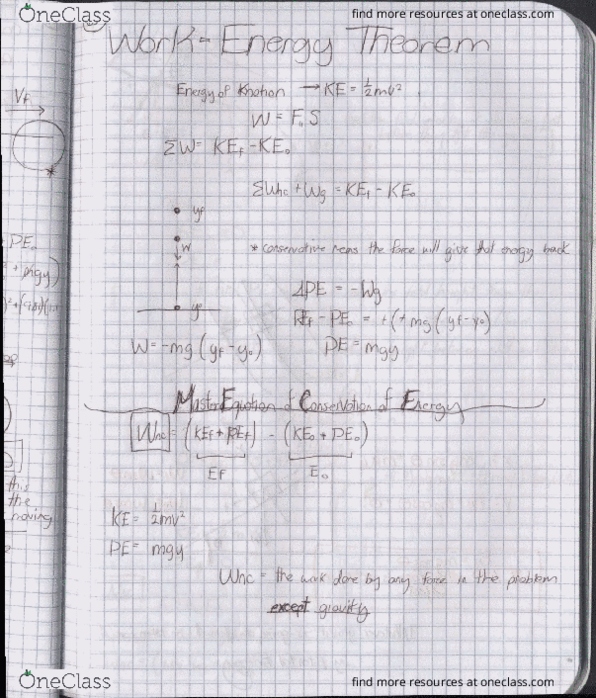 OneClass
find more resources at oneclass.com
Work-Energy Theorem
Energy of Motion → KE = ½mv²
W = F·S
ΣW = KEf - KEo
ΣWnc + Wg = KEf - KEo
yf
W
* conservative means the force will give that energy back
yo
ΔPE = -Wg
PEf - PEo = +(+mg(yf-yo)
W = -mg(yf-yo)
PE = mgy
Master Equation of Conservation of Energy
Wnc = (KEf + PEf) - (KEo + PEo)
Ef
Eo
KE = ½mv²
PE = mgy
Wnc = the work done by any force in the problem
except gravity
Vf
PEo
+ mgy)
this
the
moving
OneClass
find more resources at oneclass.com